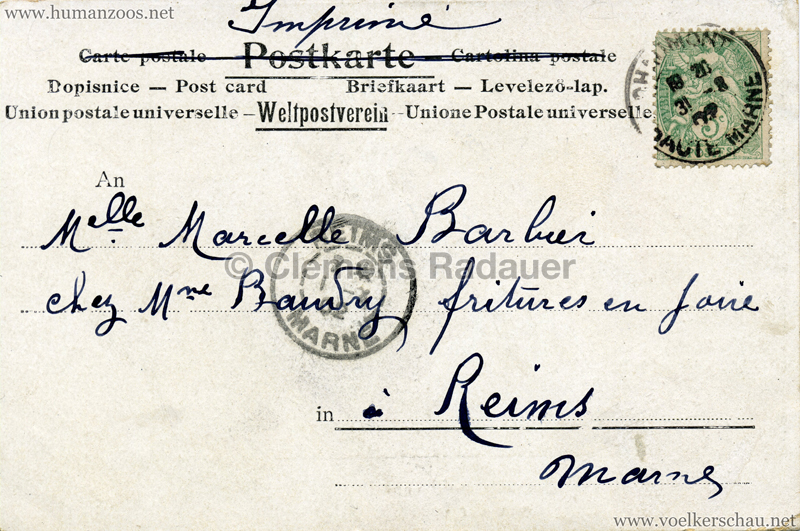 www.humanzoos.net
Imprimé
Carte postale Postkarte Cartolina postale
Dopisnice — Post card Briefkaart — Levelező-lap.
Union postale universelle – Weltpostverein – Unione Postale universelle
CHAUMONT HAUTE MARNE
5
An
Melle Marcelle Barbier
REIMS MARNE
© Clemens Radauer
chez Mme Baudry, fritures en foire
in à Reims
Marne
www.voelkerschau.net